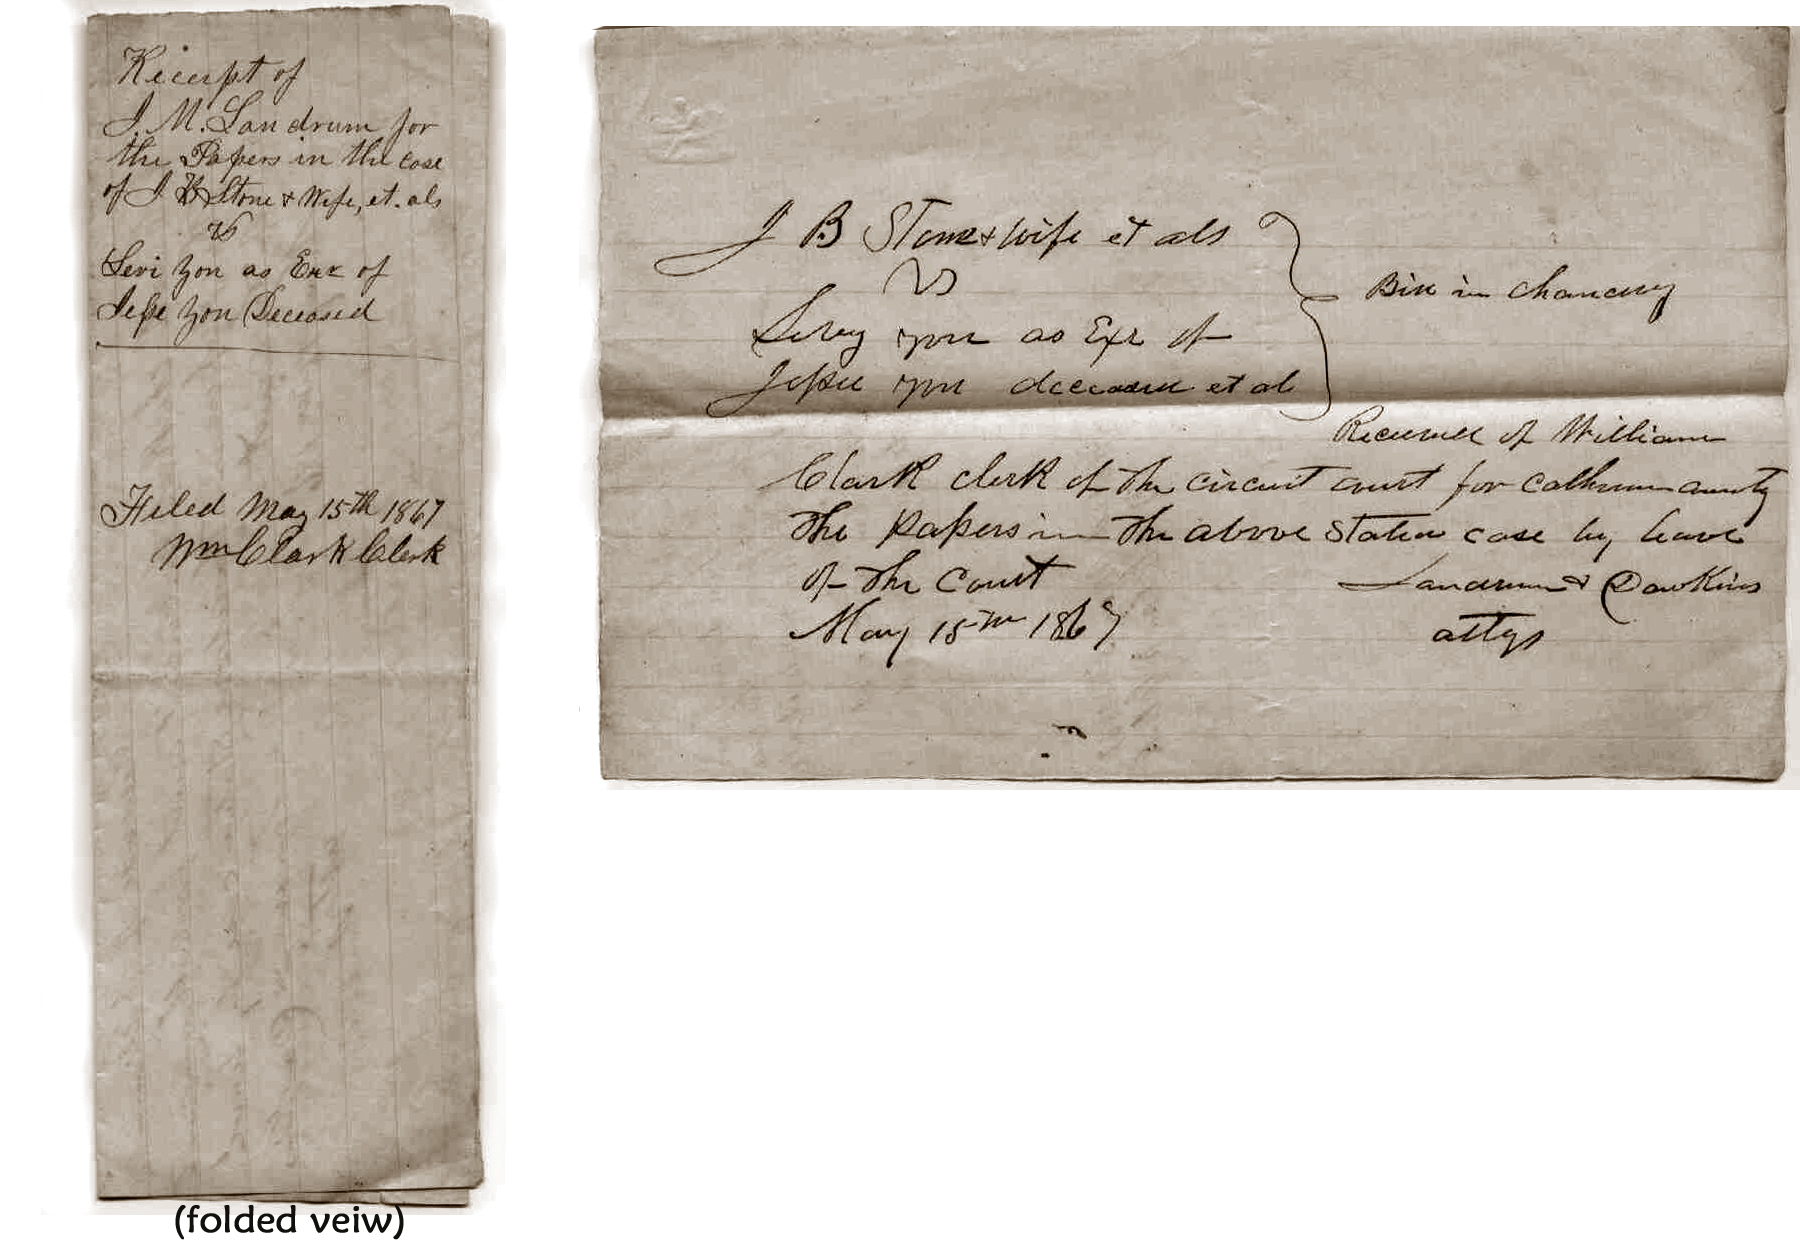 Receipt of
J. M. Landrum for
the Papers in the case
of J B Stone & Wife, et. als
vs
Levi Yon as Exr of
Jesse Yon Deceased
Filed May 15th 1867
Wm Clark Clerk
(folded veiw)
J B Stone & wife et als
vs
Levy yon as Exr of
Jesse yon deceased et al
Bill in chancery
Received of William
Clark clerk of the circuit court for calhoun county
the papers in the above stated case by leave
of the court
Landrum & Dawkins
May 15th 1867
attys